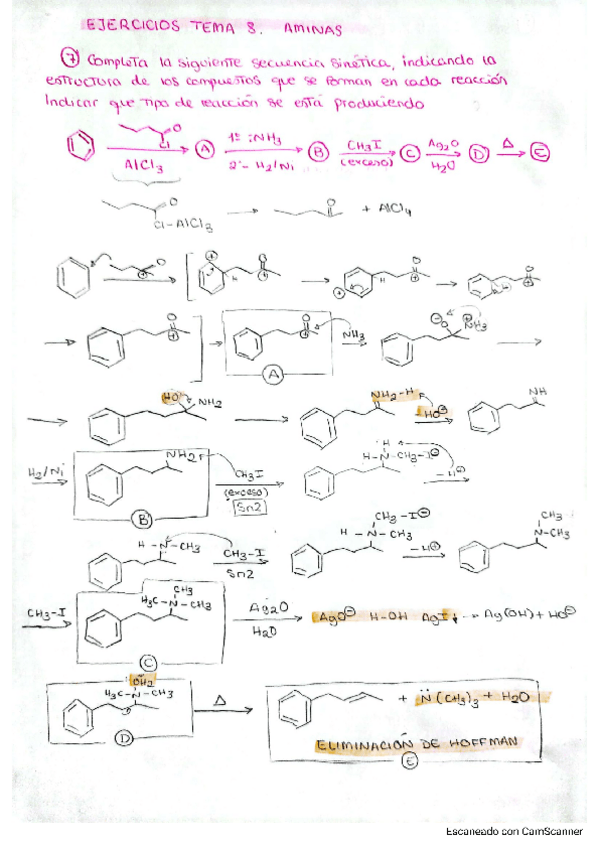 EJERCICIOS TEMA 8. AMINAS
⑦ Completa la siguiente secuencia sinética, indicando la
estructura de los compuestos que se forman en cada reacción
Indicar que tipo de reacción se está produciendo
O
Cl
AlCl3
A
1º :NH3
2º- H2/Ni
B
CH3I
(exceso)
C
Ag2O
H2O
D
Δ
E
O
Cl-AlCl3
O
+ AlCl4
O
H
O
H
O
O
O
O
NH3
O
NH3
A
HO
NH2
NH2-H
-HO
NH
H2/Ni
NH2
CH3I
(exceso)
Sn2
B
H
H-N-CH3-I
-H
H-N-CH3
CH3-I
Sn2
CH3-I
H-N-CH3
-H
CH3
N-CH3
CH3-I
CH3
H3C-N-CH3
C
Ag2O
H2O
AgO H-OH AgI↓ Ag(OH) + HO
OH2
H3C-N-CH3
D
Δ
+ N(CH3)3 + H2O
ELIMINACIÓN DE HOFFMAN
E
Escaneado con CamScanner